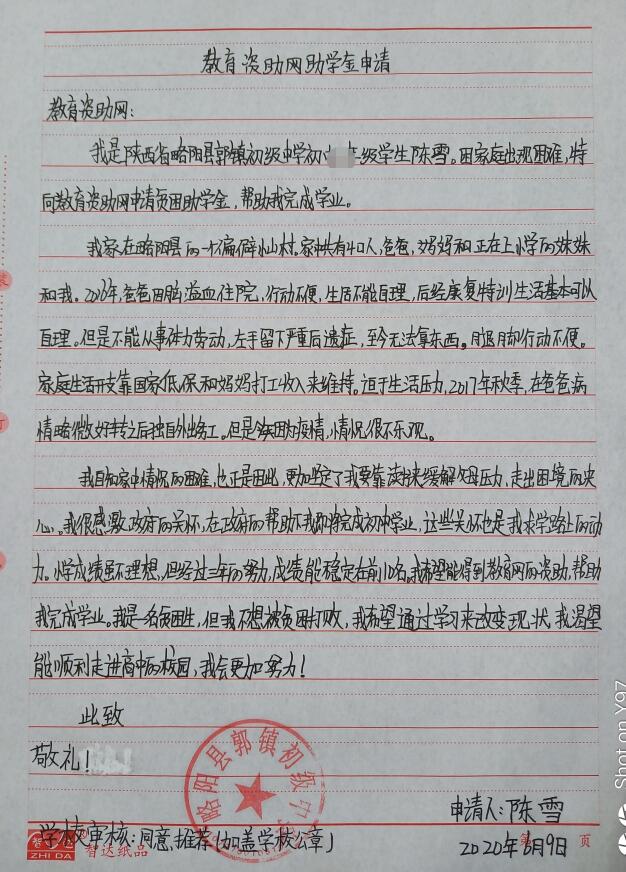 教育资助网助学金申请
教育资助网:
我是陕西省略阳县郭镇初级中学初 级学生陈雪。因家庭出现困难,特
向教育资助网申请贫困助学金,帮助我完成学业。
我家在略阳县的一个偏僻小山村。家中共有4口人,爸爸,妈妈和正在上小学的妹妹
和我。2016年,爸爸因脑溢血住院,行动不便,生活不能自理,后经康复特训生活基本可以
自理。但是不能从事体力劳动,左手留下严重后遗症,至今无法拿东西。腿脚行动不便。
家庭生活开支靠国家低保和妈妈打工收入来维持。迫于生活压力,2017年秋季,在爸爸病
情略微好转之后独自外出务工。但是今年因为疫情,情况很不乐观。
我自知家中情况的困难,也正是因此,更加坚定了我要靠读书来缓解父母压力,走出困境的决
心。我很感激政府的关怀,在政府的帮助下我即将完成初中学业,这些关怀也是我求学路上的动
力。小学成绩虽不理想,但经过三年的努力,成绩能稳定在前10名。我希望能得到教育网的资助,帮助
我完成学业。我是一名贫困生,但我不想被贫困打败,我希望通过学习来改变现状,我渴望
能顺利走进高中的校园,我会更加努力!
此致
敬礼!
略阳县郭镇初级中
申请人:陈雪
学校审核:同意推荐「加盖学校公章」
2020年6月9日
第 页
智达
ZHI DA
智达纸品
Shot on Y97